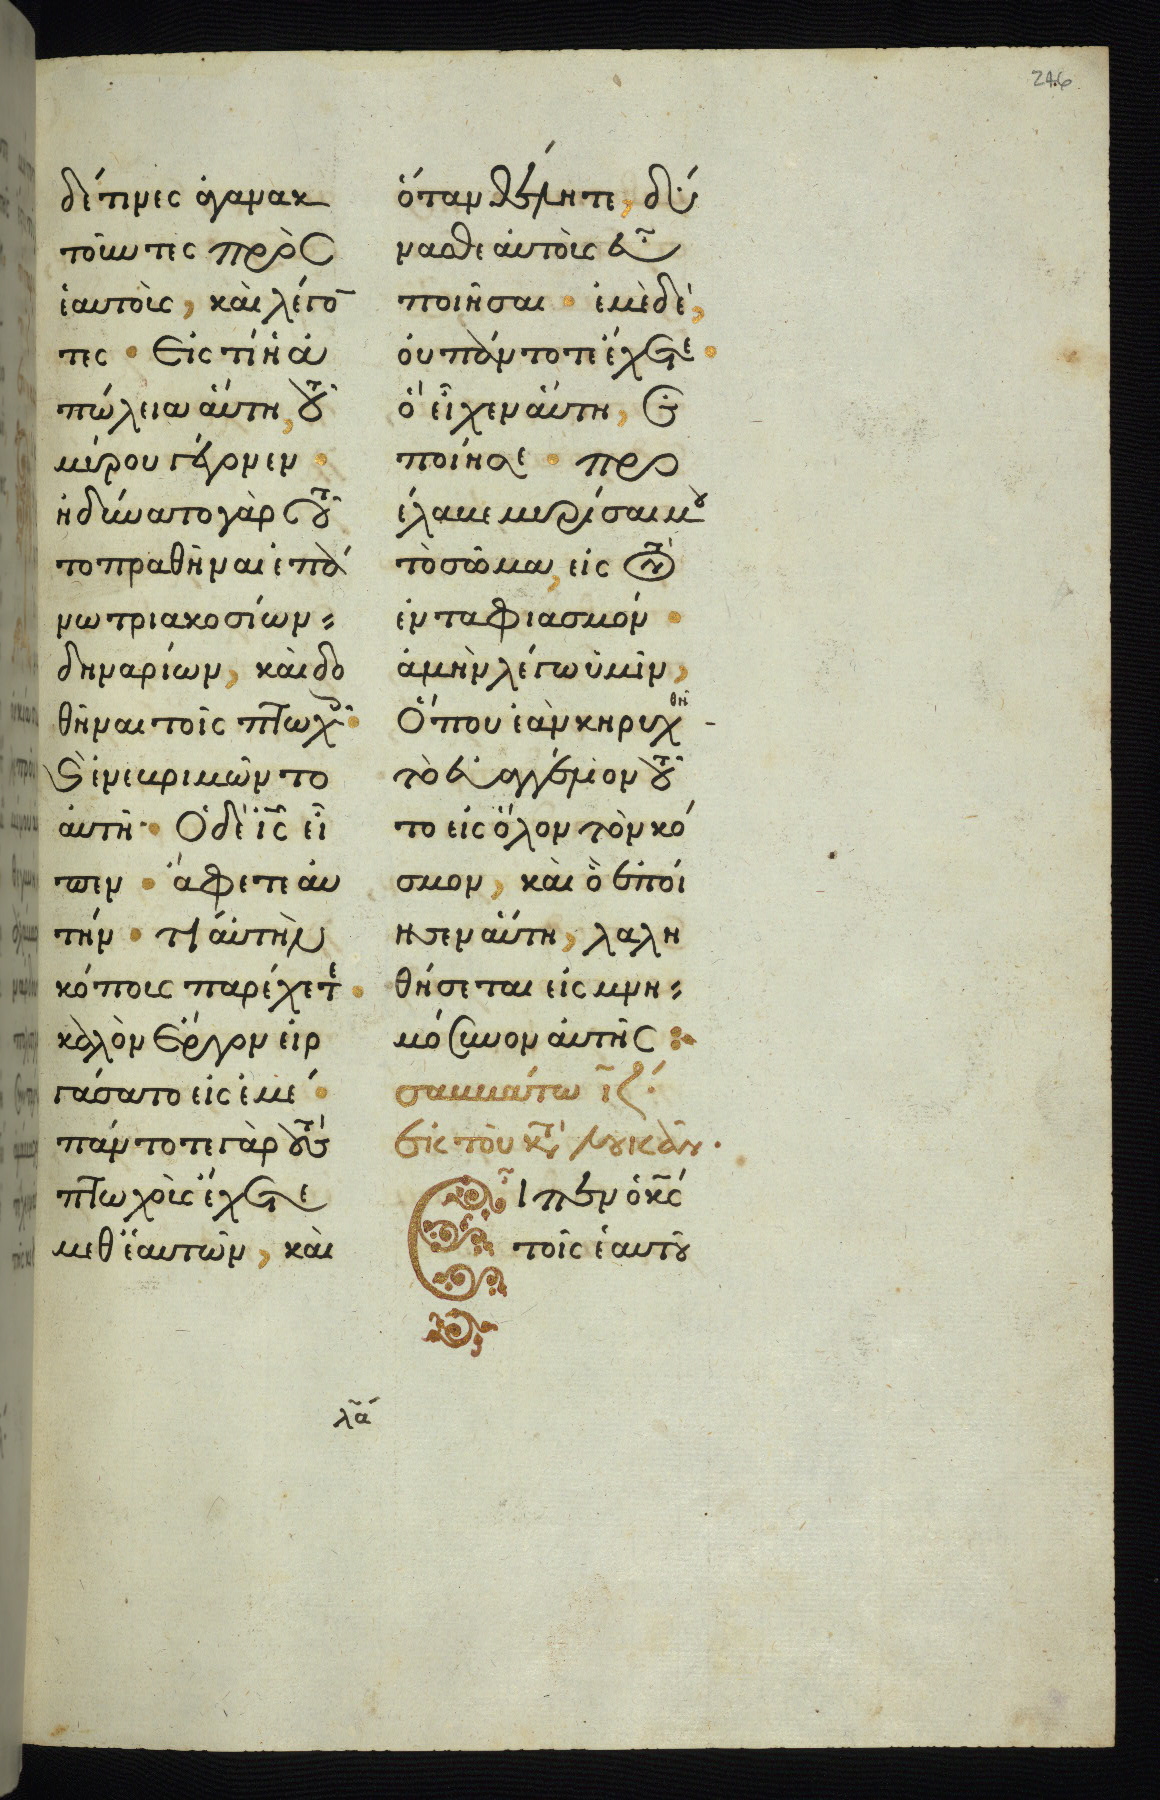 246
δέ τινες ἀγανακ
τοῦντες πρὸς
ἑαυτοὺς, καὶ λέγο̅
τες · Εἰς τί ἡ ἀ
πώλεια αὕτη, τοῦ
μύρου γέγονεν ·
ἠδύνατο γὰρ τοῦ
το πραθῆναι ἐπά
νω τριακοσίων
δηναρίων, καὶ δο
θῆναι τοῖς πτωχοῖς ·
καὶ ἐνεβριμῶντο
αὐτῇ · Ὁ δὲ ι̅ς̅ εἶ
πεν · ἄφετε αὐ
τήν · τί αὐτῇ
κόπους παρέχετε ·
καλὸν ἔργον εἰρ
γάσατο εἰς ἐμέ ·
πάντοτε γὰρ τοὺς
πτωχοὺς ἔχετε
μεθ ἑαυτῶν, καὶ
ὅταν θέλητε, δύ
νασθε αὐτοὺς εὖ
ποιῆσαι · ἐμὲ δέ,
οὐ πάντοτε ἔχετε ·
ὃ εἶχεν αὕτη,
ποίησε · προ
έλαβε μυρίσαι μου
τὸ σῶμα, εἰς τὸν
ἐνταφιασμόν ·
ἀμὴν λέγω ὑμῖν,
Ὅπου ἐὰν κηρυχθῆ
τὸ εὐαγγέλιον τοῦ
το εἰς ὅλον τὸν κό
σμον, καὶ ὃ ἐποί
ησεν αὕτη, λαλη
θήσεται εἰς μνη
μόσυνον αὐτῆς :
σαββάτω ι̅ζ̅ ·
ἐκ τοῦ κατὰ λουκᾶν ·
Εἶπεν ὁ κ̅ς̅
τοῖς ἑαυτοῦ
λ̅α̅